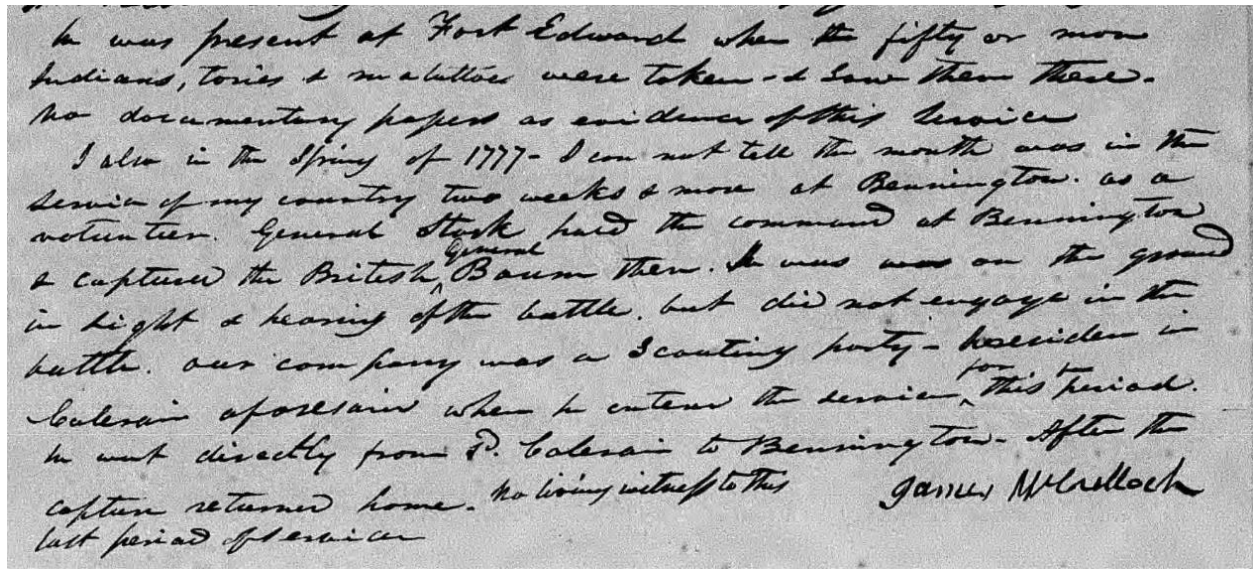 he was present at Fort Edward when the fifty or more
Indians, tories & mulattoes were taken - & Saw them there -
No documentary papers as evidence of this Service
I also in the Spring of 1777 - I can not tell the month was in the
service of my country two weeks & more at Bennington. as a
volunteer. General Stark had the command at Bennington
& captured the British General Baum then. He was was on the ground
in sight & hearing of the battle. but did not engage in the
battle. our company was a Scouting party - he resided in
Colerain aforesaid when he entered the service for this period.
he went directly from sd. Colerain to Bennington - After the
capture returned home. No living witness to this
last period of service
James McCulloch